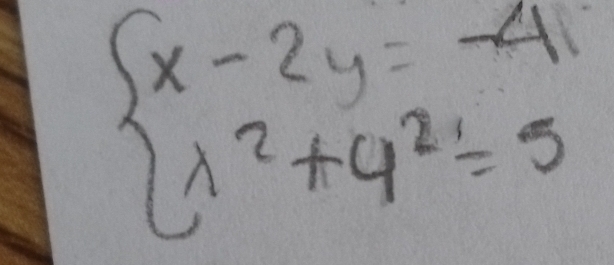 x - 2y = -4
x² + y² = 5